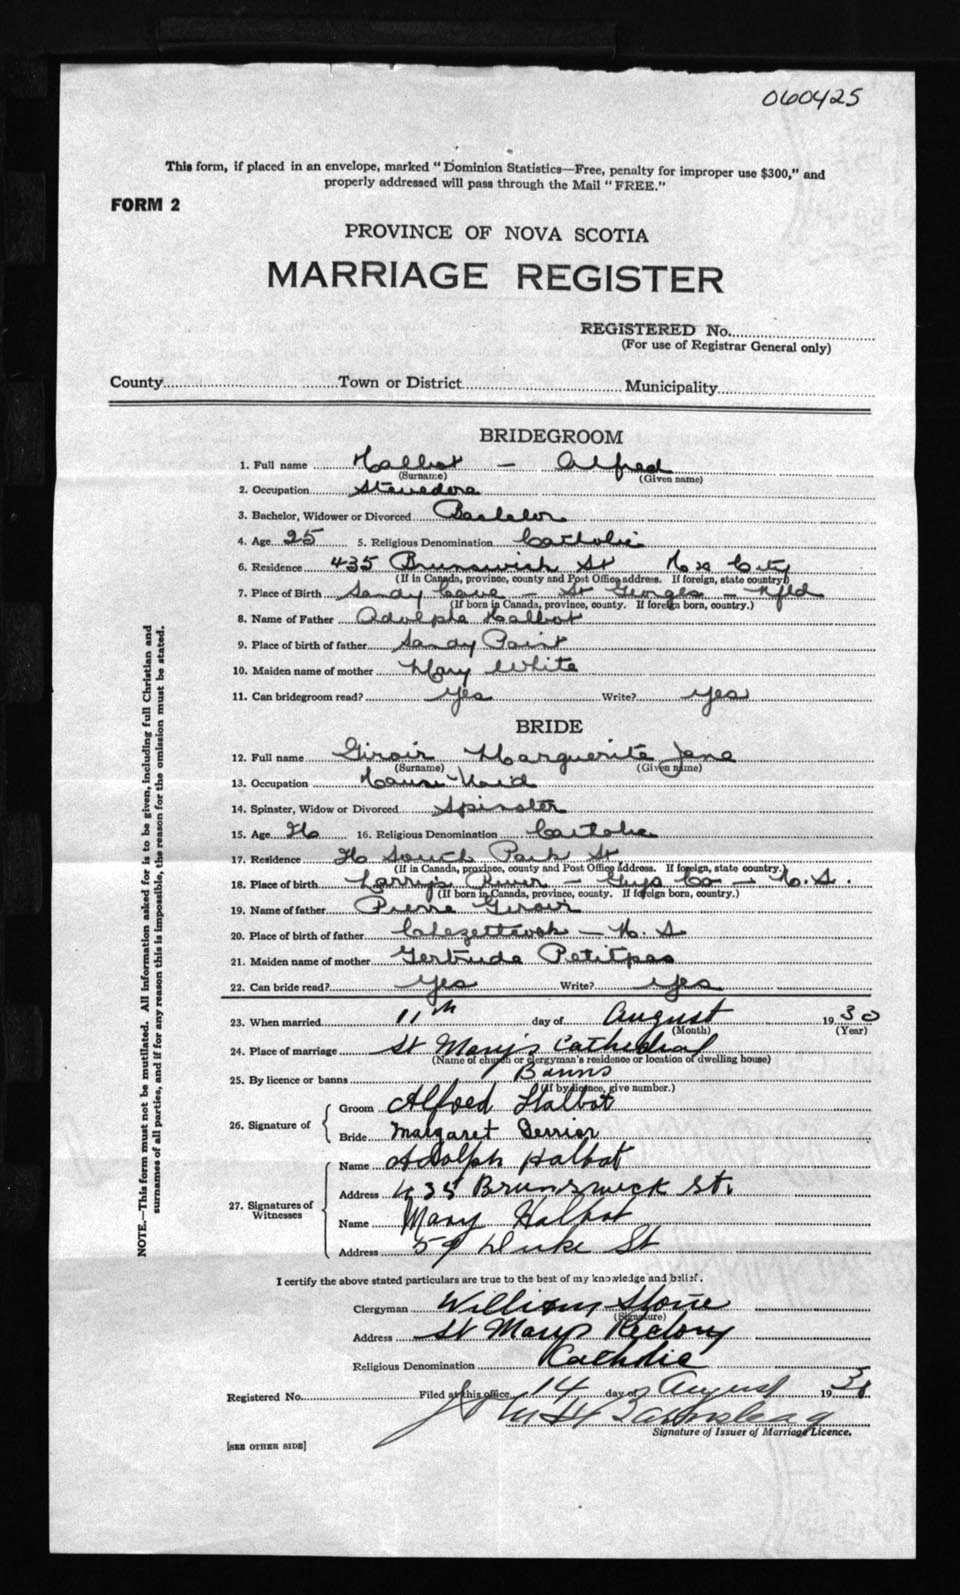 060425
This form, if placed in an envelope, marked "Dominion Statistics—Free, penalty for improper use $300," and
properly addressed will pass through the Mail "FREE."
FORM 2
PROVINCE OF NOVA SCOTIA
MARRIAGE REGISTER
REGISTERED No.
(For use of Registrar General only)
County Town or District Municipality
BRIDEGROOM
1. Full name Halbot — Alfred
(Surname) (Given name)
2. Occupation Stevedore
3. Bachelor, Widower or Divorced Bachelor
4. Age 25 5. Religious Denomination Catholic
6. Residence 435 Brunswick St Hx City
(If in Canada, province, county and Post Office address. If foreign, state country)
7. Place of Birth Sandy Cove — St Georges — Nfld
(If born in Canada, province, county. If foreign born, country.)
8. Name of Father Adolphe Halbot
9. Place of birth of father Sandy Point
10. Maiden name of mother Mary White
11. Can bridegroom read? Yes Write? Yes
BRIDE
12. Full name Giroir Marguerite Jane
(Surname) (Given name)
13. Occupation House-Maid
14. Spinster, Widow or Divorced Spinster
15. Age 16. Religious Denomination Catholic
17. Residence South Park St
(If in Canada, province, county and Post Office address. If foreign, state country.)
18. Place of birth Larry's River — Guys Co — N.S.
(If born in Canada, province, county. If foreign born, country.)
19. Name of father Pierre Giroir
20. Place of birth of father — N.S
21. Maiden name of mother Gertrude Petitpas
22. Can bride read? Yes Write? Yes
23. When married 11th day of August 1930
(Month) (Year)
24. Place of marriage St Mary's Cathedral
(Name of church or clergyman's residence or location of dwelling house)
25. By licence or banns Banns
(If by licence, give number.)
26. Signature of Groom Alfred Halbot
Bride Margaret
27. Signatures of Witnesses Name Adolph Halbot
Address 435 Brunswick St.
Name Mary Halbot
Address 59 Duke St
I certify the above stated particulars are true to the best of my knowledge and belief.
Clergyman William Stone
(Signature)
Address St Marys Rectory
Religious Denomination Catholic
Registered No. Filed at this office 14 day of August 19
Signature of Issuer of Marriage Licence.
[SEE OTHER SIDE]
NOTE.—This form must not be mutilated. All information asked for is to be given, including full Christian and
surnames of all parties, and if for any reason this is impossible, the reason for the omission must be stated.